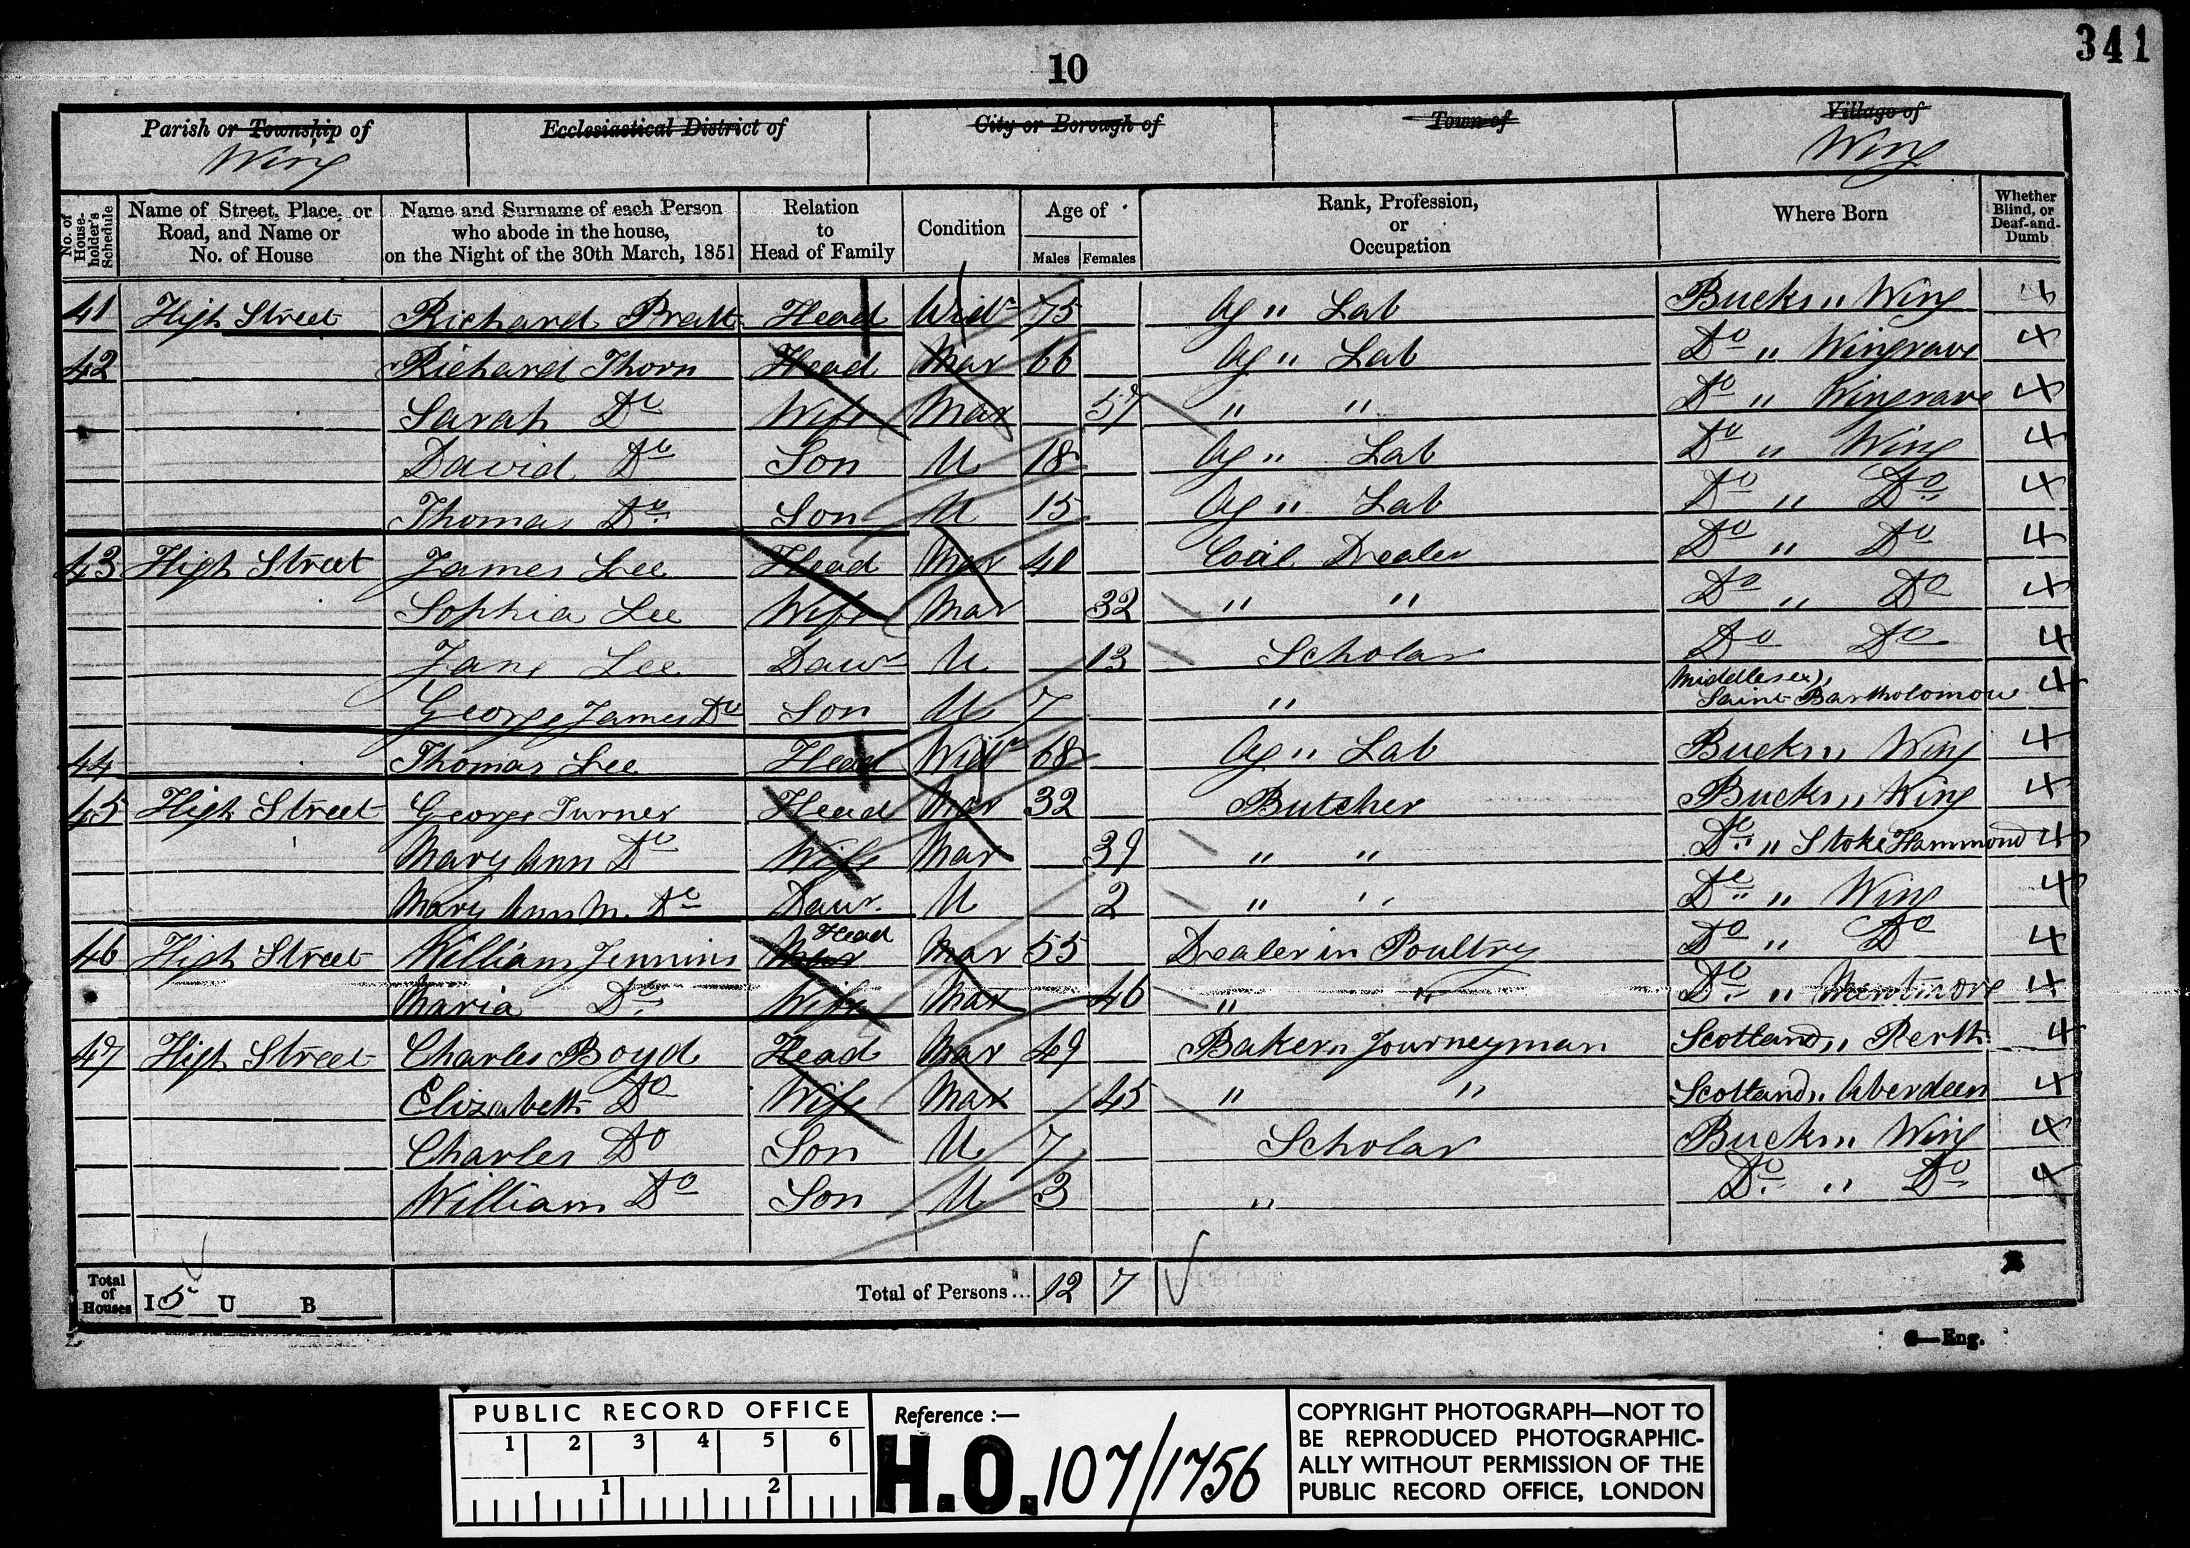 341
10
Parish or Township of Ecclesiastical District of City or Borough of Town of Village of
Wing Wing
No. of Householder's Schedule Name of Street, Place, or Road, and Name or No. of House Name and Surname of each Person who abode in the house, on the Night of the 30th March, 1851 Relation to Head of Family Condition Age of Males Females Rank, Profession, or Occupation Where Born Whether Blind, or Deaf-and-Dumb
41 High Street Richard Pratt Head Widr 75 Ag " Lab Bucks " Wing 4
42 Richard Thorn Head Mar 66 Ag " Lab Do " Wingrave 4
Sarah Do Wife Mar 57 " " Do " Wingrave 4
David Do Son U 18 Ag " Lab Do " Wing 4
Thomas Do Son U 15 Ag " Lab Do " Do 4
43 High Street James Lee Head Mar 40 Coal Dealer Do " Do 4
Sophia Lee Wife Mar 32 " " Do " Do 4
Jane Lee Daur U 13 Scholar Do Do 4
George James Do Son U 7 " Middlesex, Saint Bartholomew 4
44 Thomas Lee Head Widr 68 Ag " Lab Bucks " Wing 4
45 High Street George Turner Head Mar 32 Butcher Bucks " Wing 4
Mary Ann Do Wife Mar 39 " " Do " Stoke Hammond 4
Mary Ann M. Do Daur. U 2 " " Do " Wing 4
46 High Street William Jennins Head Mar 55 Dealer in Poultry Do " Do 4
Maria Do Wife Mar 46 " " Do " Mentmore 4
47 High Street Charles Boyd Head Mar 49 Baker " Journeyman Scotland " Perth 4
Elizabeth Do Wife Mar 45 " " Scotland " Aberdeen 4
Charles Do Son U 7 Scholar Bucks " Wing 4
William Do Son U 3 " Do " Do 4
Total of Houses I 5 U B Total of Persons... 12 7
—Eng.
PUBLIC RECORD OFFICE
1 2 3 4 5 6
1 2
Reference :—
H.O. 107/1756
COPYRIGHT PHOTOGRAPH—NOT TO
BE REPRODUCED PHOTOGRAPHIC-
ALLY WITHOUT PERMISSION OF THE
PUBLIC RECORD OFFICE, LONDON